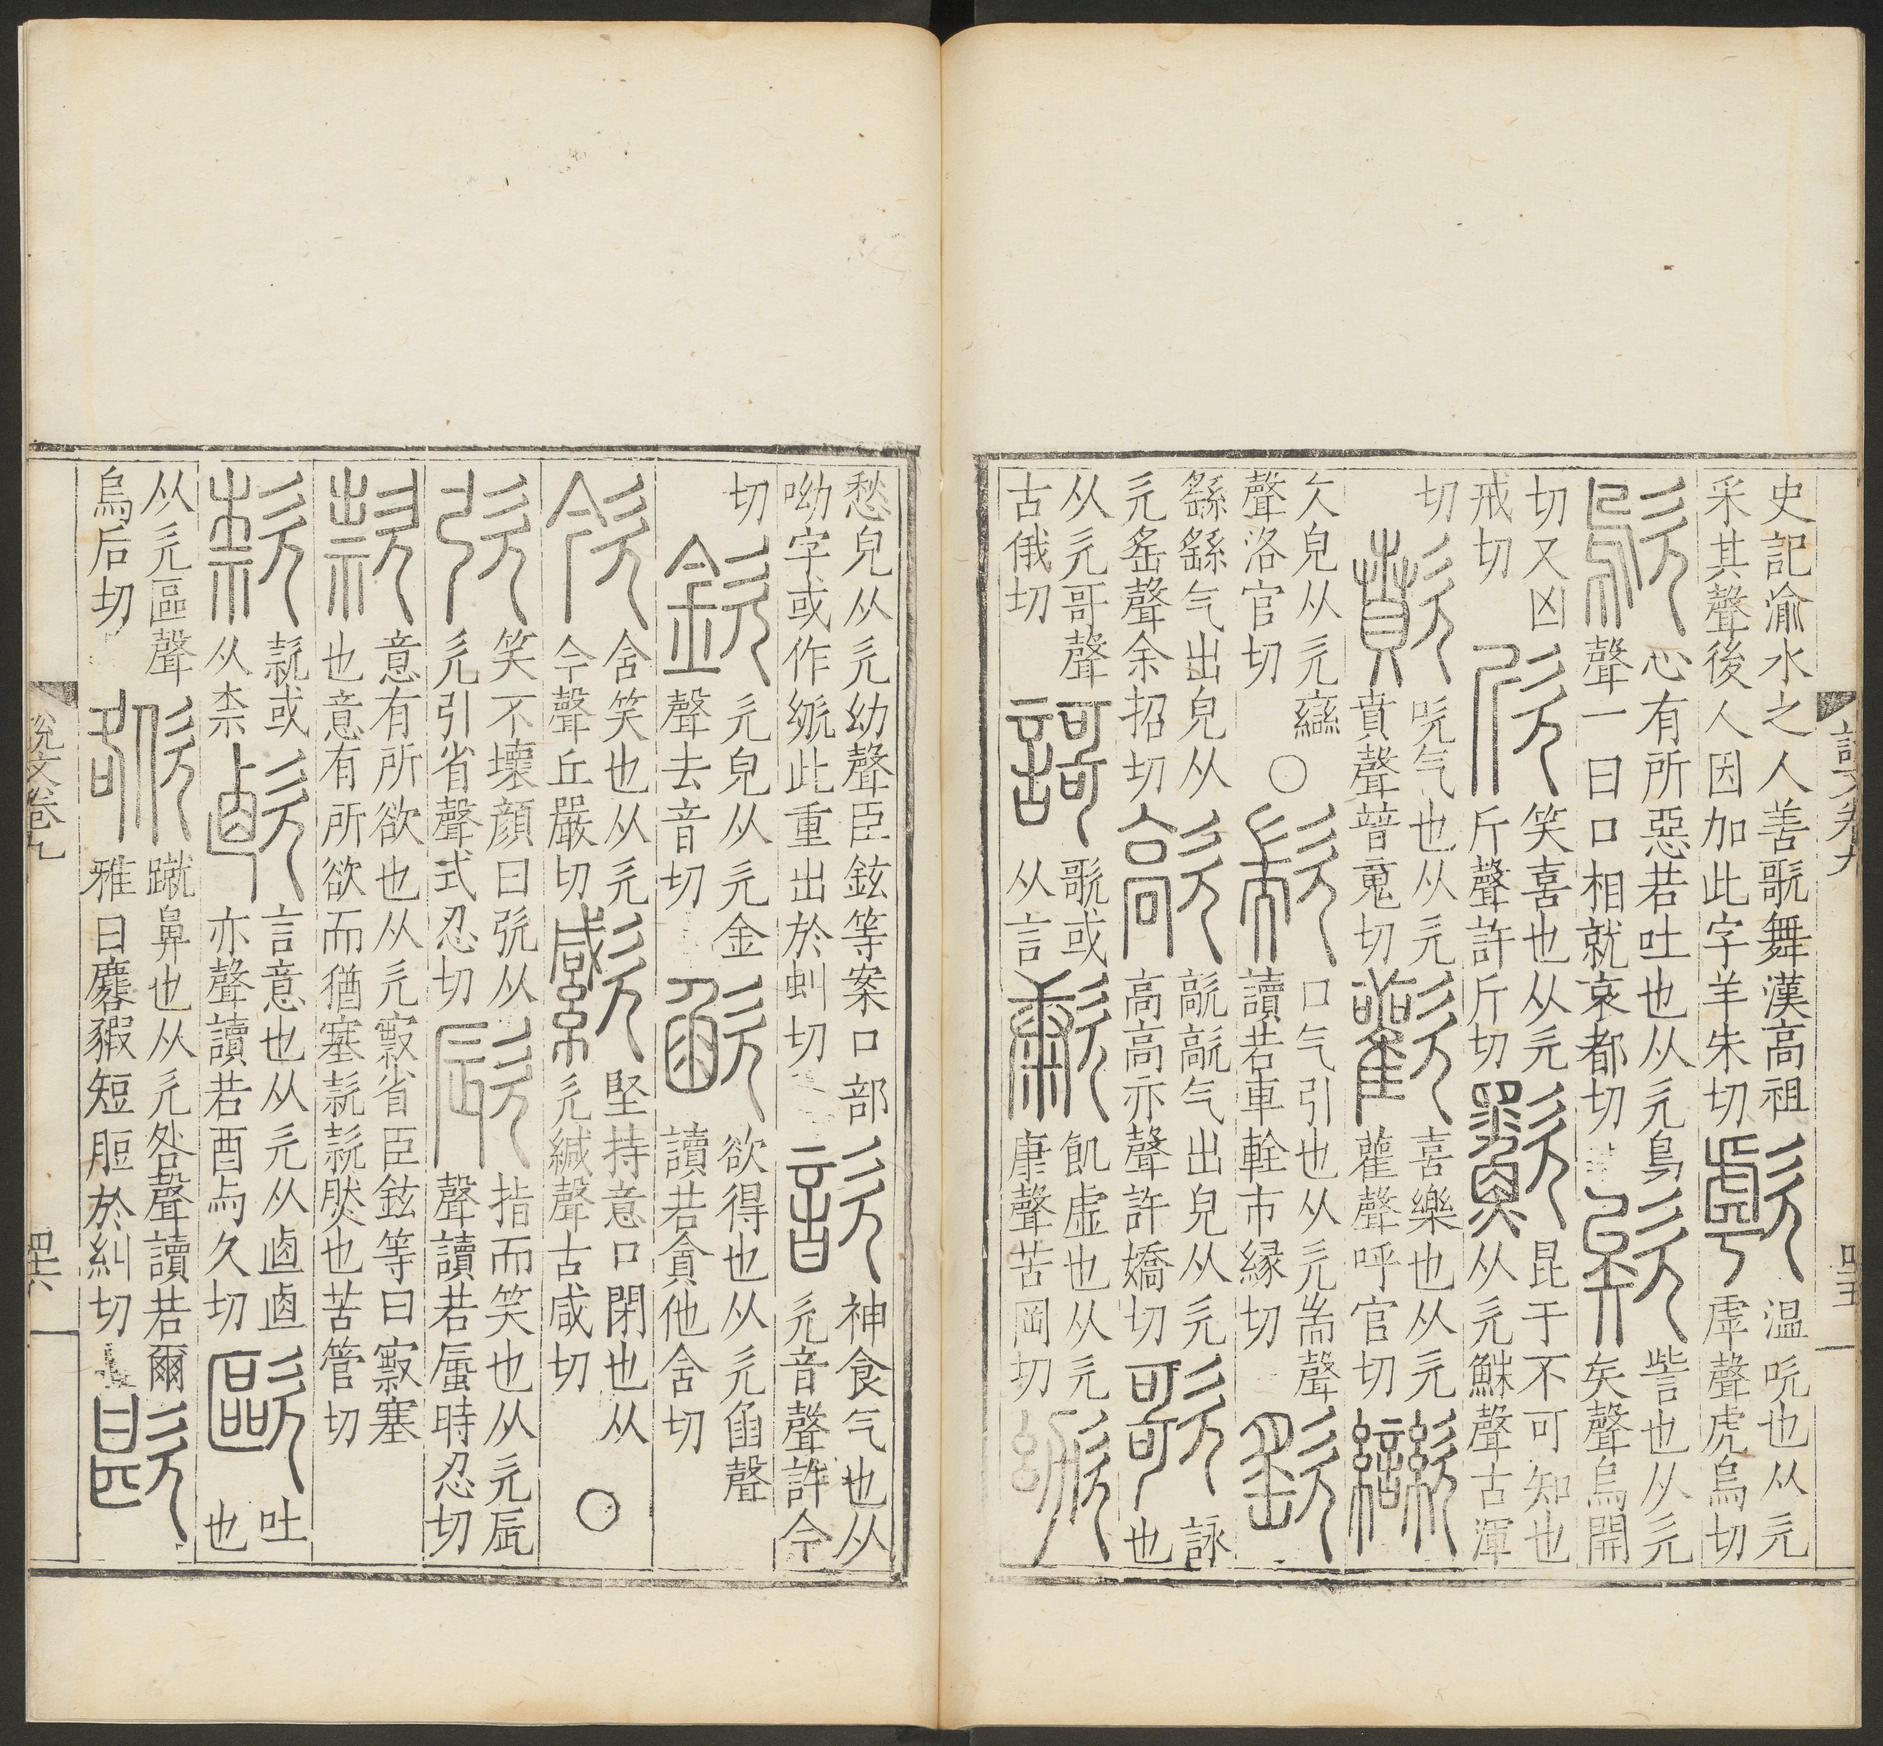 史記渝水之人善歌舞漢高祖
采其聲後人因加此字羊朱切
歑
温吹也从欠
虖聲虎烏切
歍
心有所惡若吐也从欠烏
聲一曰口相就哀都切
欸
訾也从欠
矣聲烏開
切又凶
戒切
欣
笑喜也从欠
斤聲許斤切
昆于不可知也
从欠鰥聲古渾
切
歕
吹气也从欠
賁聲普䰟切
歡
喜樂也从欠
雚聲呼官切
欠皃从欠䜌
聲洛官切
○
歂
口气引也从欠耑聲
讀若車輇市縁切
繇繇气出皃从
欠䍃聲余招切
歊
歊歊气出皃从欠
高高亦聲許嬌切
歌
詠
也
从欠哥聲
古俄切
謌
歌或
从言
歁
飢虛也从欠
康聲苦岡切
愁皃从欠幼聲臣鉉等案口部
呦字或作㰶此重出於虯切
歆
神食气也从
欠音聲許今
切
欽
欠皃从欠金
聲去音切
欲得也从欠臽聲
讀若貪他含切
含笑也从欠
今聲丘嚴切
堅持意口閉也从
欠緘聲古咸切
○
笑不壞顏曰弞从
欠引省聲式忍切
指而笑也从欠𠨷
聲讀若蜃時忍切
款
意有所欲也从欠㝮省臣鉉等曰㝮塞
也意有所欲而猶塞款款然也苦管切
款或
从柰
言意也从欠从卤卤
亦聲讀若酉与久切
歐
吐
也
从欠區聲
烏后切
蹴鼻也从欠咎聲讀若爾
雅曰麔豭短脰於糾切
說文卷九
四十五
說文卷九
四十六